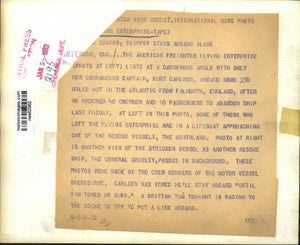 WATCH YOUR CREDIT, INTERNATIONAL NEWS PHOTO
FLYING ENTERPRISE-TAPE)
DANGER; SKIPPER STAYS ABOARD ALONE
ENG.,..THE AMERICAN FREIGHTER FLYING ENTERPRISE
(PHOTO AT LEFT) LISTS AT A DANGEROUS ANGLE WITH ONLY
HER COURAGEOUS CAPTAIN, KURT CARLSEN, ABOARD SOME 350
MILES OUT IN THE ATLANTIC FROM FALMOUTH, ENGLAND, AFTER
HE ORDERED 40 CREWMEN AND 10 PASSENGERS TO ABANDON SHIP
LAST FRIDAY. AT LEFT IN THIS PHOTO, SOME OF THOSE WHO
LEFT THE FLYING ENTERPRISE ARE IN A LIFEBOAT APPROACHING
ONE OF THE RESCUE VESSELS, THE SOUTHLAND. PHOTO AT RIGHT
IS ANOTHER VIEW OF THE STRICKEN VESSEL AS ANOTHER RESCUE
SHIP, THE GENERAL GREELEY, PASSES IN BACKGROUND. THESE
PHOTOS WERE MADE BY TWO CREW MEMBERS OF THE MOTOR VESSEL
SHERBOURNE. CARLSEN HAS VOWED HE'LL STAY ABOARD "UNTIL
I'M TOWED OR SUNK." A BRITISH TUG TONIGHT IS RACING TO
THE SCENE TO TRY TO PUT A LINE ABOARD.